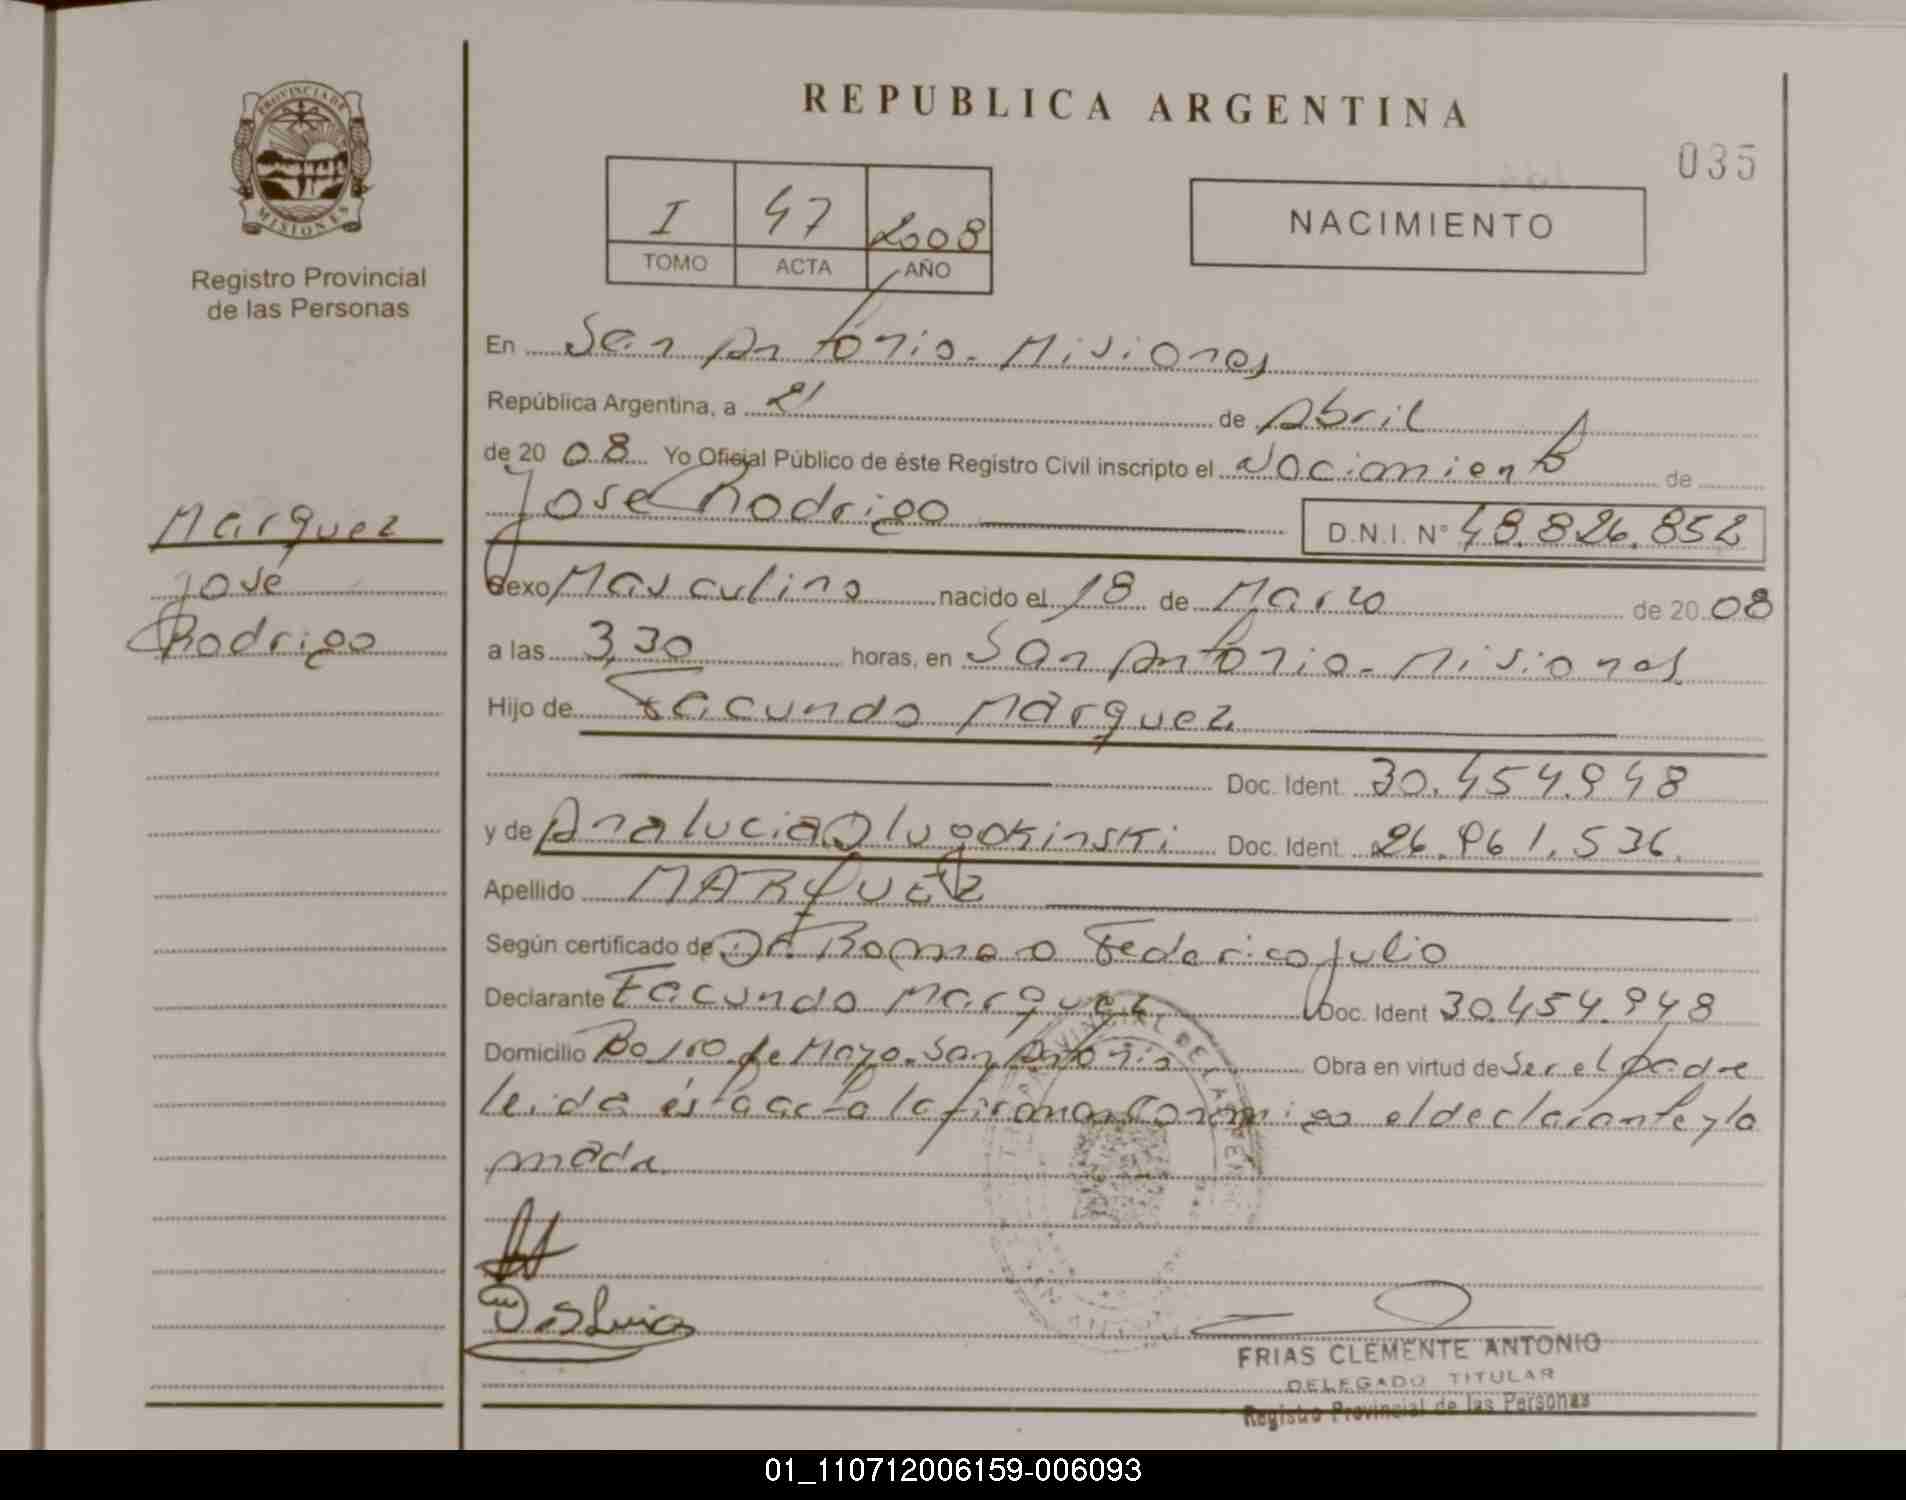 PROVINCIA DE
MISIONES
Registro Provincial
de las Personas
Marquez
José
Rodrigo
REPUBLICA ARGENTINA
035
I 47 2008
TOMO ACTA AÑO
NACIMIENTO
En San Antonio - Misiones
República Argentina, a 21 de Abril
de 20 08 Yo Oficial Público de éste Registro Civil inscripto el Nacimiento de
José Rodrigo D.N.I. N° 48.826.852
Sexo Masculino nacido el 18 de Marzo de 20 08
a las 3,30 horas, en San Antonio - Misiones
Hijo de Facundo Marquez
Doc. Ident. 30.454.948
y de Analucia Dlugokinski Doc. Ident. 26.961.536.
Apellido MARQUEZ
Según certificado de Dr. Romero Federico Julio
Declarante Facundo Marquez Doc. Ident 30.454.948
Domicilio de Mayo - San Antonio Obra en virtud de Ser el padre
leida ésta acta la firman conmigo el declarante y la
madre
FRIAS CLEMENTE ANTONIO
DELEGADO TITULAR
Registro Provincial de las Personas
01_110712006159-006093